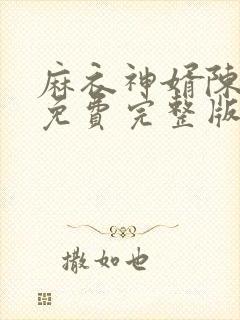 麻衣神婿陈
免費完整版
撒如也